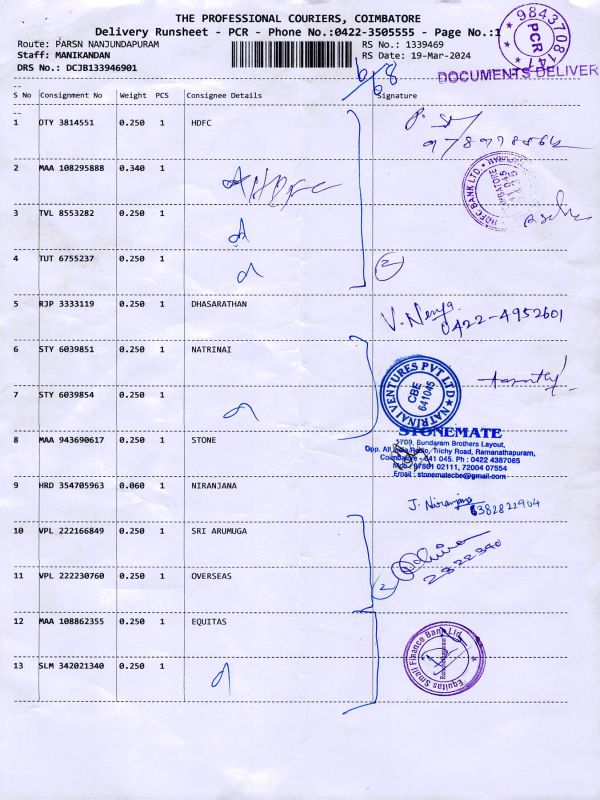 THE PROFESSIONAL COURIERS, COIMBATORE
Delivery Runsheet - PCR - Phone No.:0422-3505555 - Page No.:1
Route: PARSN NANJUNDAPURAM
RS No.: 1339469
Staff: MANIKANDAN
RS Date: 19-Mar-2024
DRS No.: DCJB133946901
PCR
DOCUMENTS DELIVER
--
S No Consignment No Weight PCS Consignee Details Signature
--
1 DTY 3814551 0.250 1 HDFC
2 MAA 108295888 0.340 1 HDFC
HDFC BANK LTD.
3 TVL 8553282 0.250 1
4 TUT 6755237 0.250 1 2
5 RJP 3333119 0.250 1 DHASARATHAN
0422-4952601
6 STY 6039851 0.250 1 NATRINAI
NATRINAI VENTURES PVT LTD
CBE
641045
7 STY 6039854 0.250 1
8 MAA 943690617 0.250 1 STONE
STONEMATE
Sundaram Brothers Layout,
Trichy Road, Ramanathapuram,
641 045. Ph : 0422 4367085
02111, 72004 07554
Email : stonematecbe@gmail.com
9 HRD 354705963 0.060 1 NIRANJANA
J. Niranjana
6382822904
10 VPL 222166849 0.250 1 SRI ARUMUGA
11 VPL 222230760 0.250 1 OVERSEAS 2
2322340
12 MAA 108862355 0.250 1 EQUITAS
Equitas Small Finance Bank Ltd.
13 SLM 342021340 0.250 1